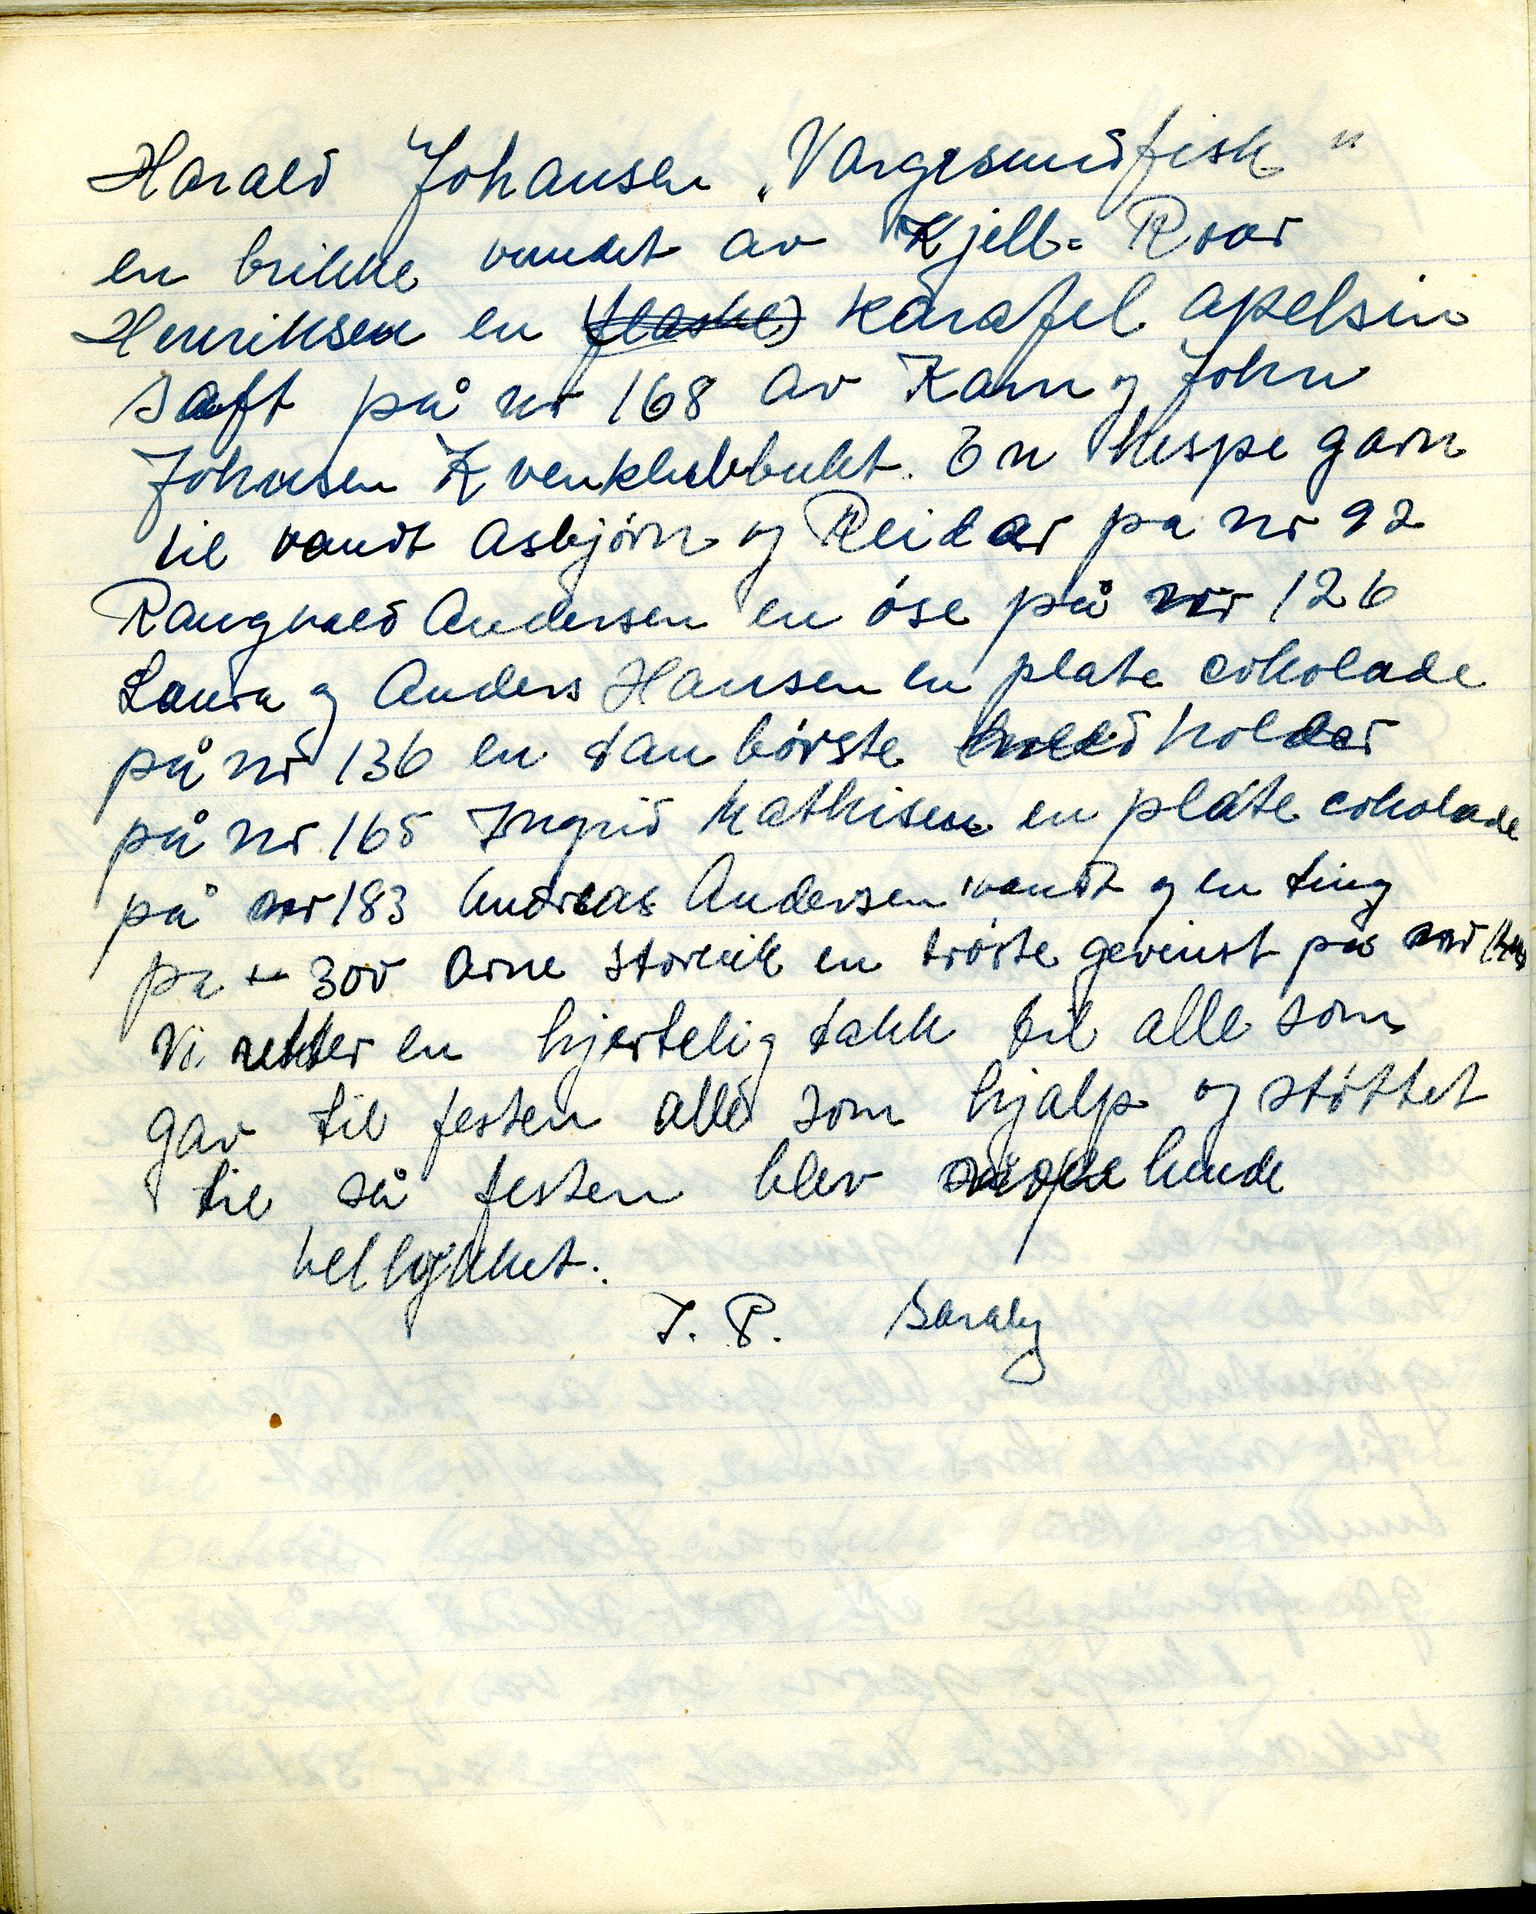 Harald Johansen „Vargesundfisk"
en brikke vundet av Kjell-Roar
Henriksen en (flaske) karafel apelsin
saft på nr 168 av Karn og John
Johnsen Kvenklubbukt. En hespe garn
til vandt Asbjørn og Reidar pa nr 92
Rangvald Andersen en øse på nr 126
Laura og Anders Hansen en plate cokolade
på nr 136 en tan børste holder
på nr 165 Ingrid Mathisen en plate cokolade
på nr 183 Andreas Andersen vandt og en ting
pa nr 300 Arne Storvik en trøste gevinst på nr
Vi retter en hjertelig takk til alle som
gav til festen alle som hjalp og støttet
til så festen blev
vellykket.
I. P. Saraby